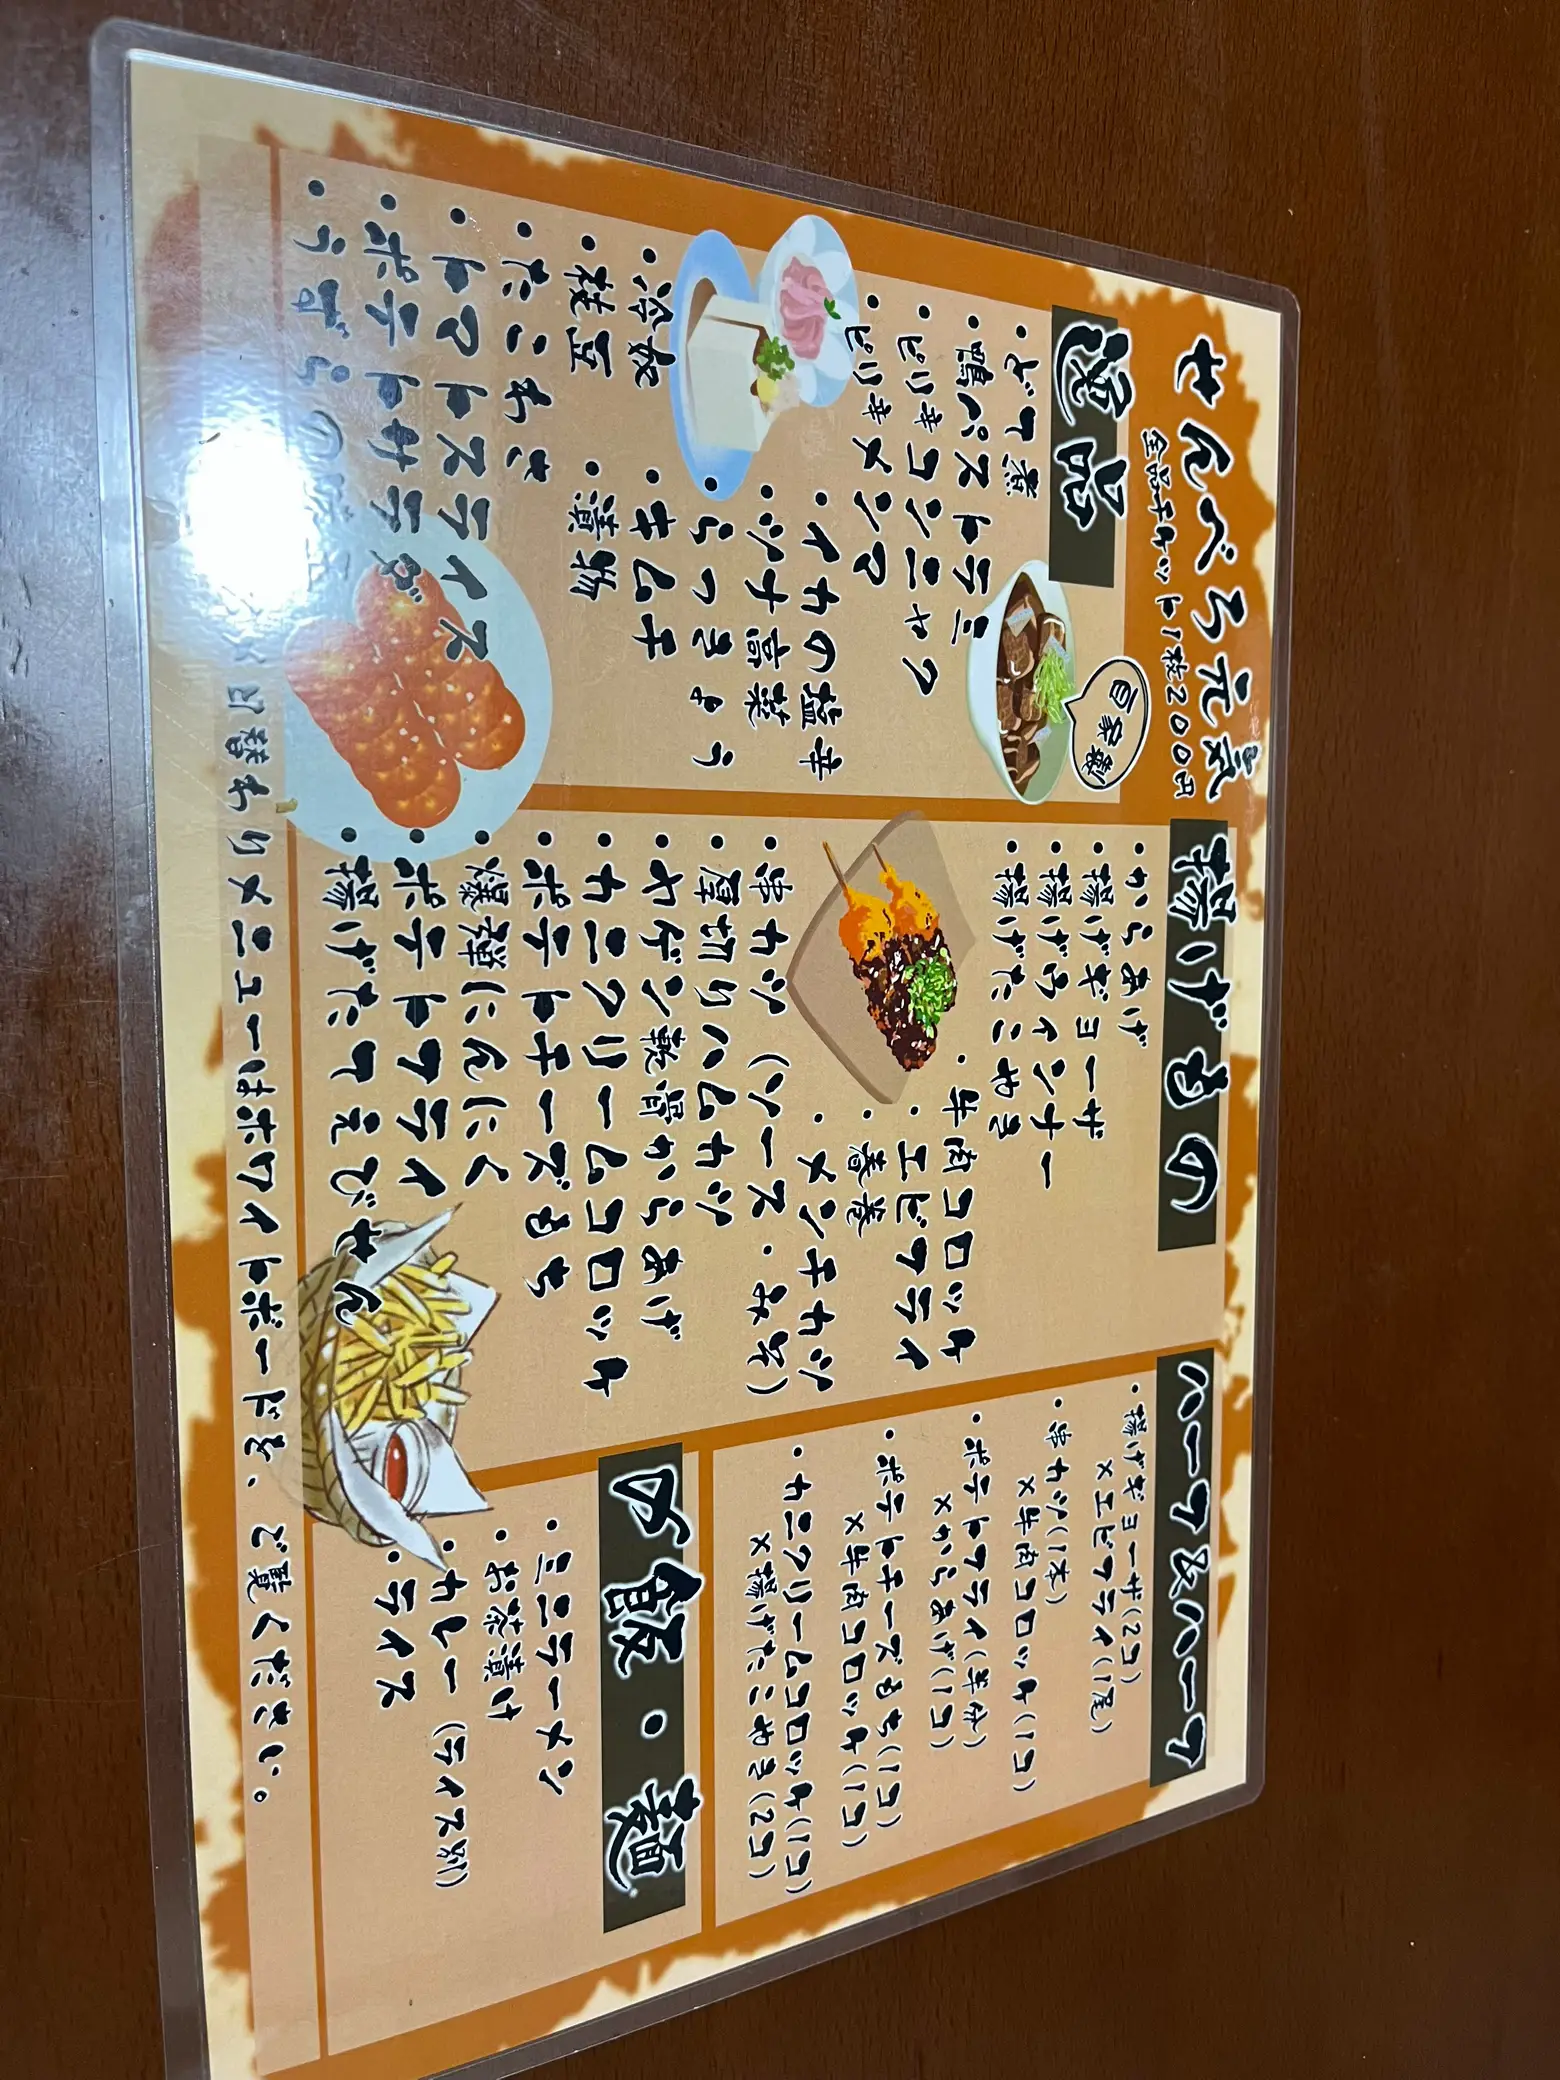 せんべろ元気
全品チケット1枚200円
逸品
自家製
・どて煮
・鴨パストラミ
・ピリ辛コンニャク
・ピリ辛メンマ
・イカの塩辛
・ツナ高菜
・らっきょう
・冷奴
・キムチ
・枝豆
・漬物
・たこわさ
・トマトスライス
・ポテトサラダ
・うずらの
揚げもの
・からあげ
・揚げギョーザ
・揚げウインナー
・揚げたこやき
・牛肉コロッケ
・エビフライ
・春巻
・メンチカツ
・串カツ（ソース・みそ）
・厚切りハムカツ
・ヤゲン軟骨からあげ
・カニクリームコロッケ
・ポテトチーズもち
・爆弾にんにく
・ポテトフライ
・揚げたてえびせん
ハーフ&ハーフ
・揚げギョーザ(2コ)
×エビフライ(1尾)
・串カツ(1本)
×牛肉コロッケ(1コ)
・ポテトフライ(半分)
×からあげ(1コ)
・ポテトチーズもち(1コ)
×牛肉コロッケ(1コ)
・カニクリームコロッケ(1コ)
×揚げたこやき(2コ)
〆飯・麺
・ミニラーメン
・お茶漬け
・カレー（ライス別）
・ライス
日替わりメニューはホワイトボードを、ご覧ください。